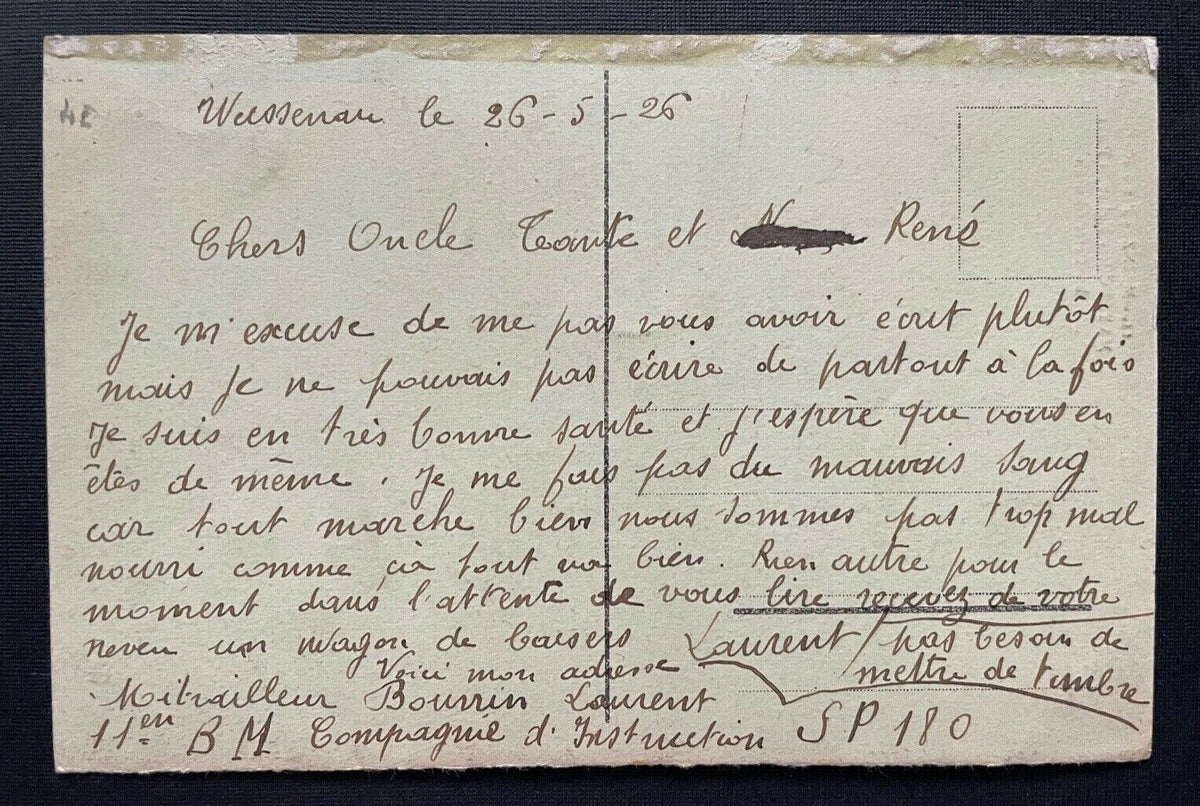 4E
Weissenau le 26-5-26
Chers Oncle Tante et René
Je m'excuse de me pas vous avoir écrit plutôt
mais je ne pouvais pas écrire de partout à la fois
Je suis en très bonne santé et j'espère que vous en
êtes de même. Je me fais pas du mauvais sang
car tout marche bien nous sommes pas trop mal
nourri comme çà tout va bien. Rien autre pour le
moment dans l'attente de vous lire recevez de votre
neveu un wagon de baisers Laurent / pas besoin de
mettre de timbre
Voici mon adresse
Mitrailleur Laurent
11en BM Compagnie d'Instruction SP 180